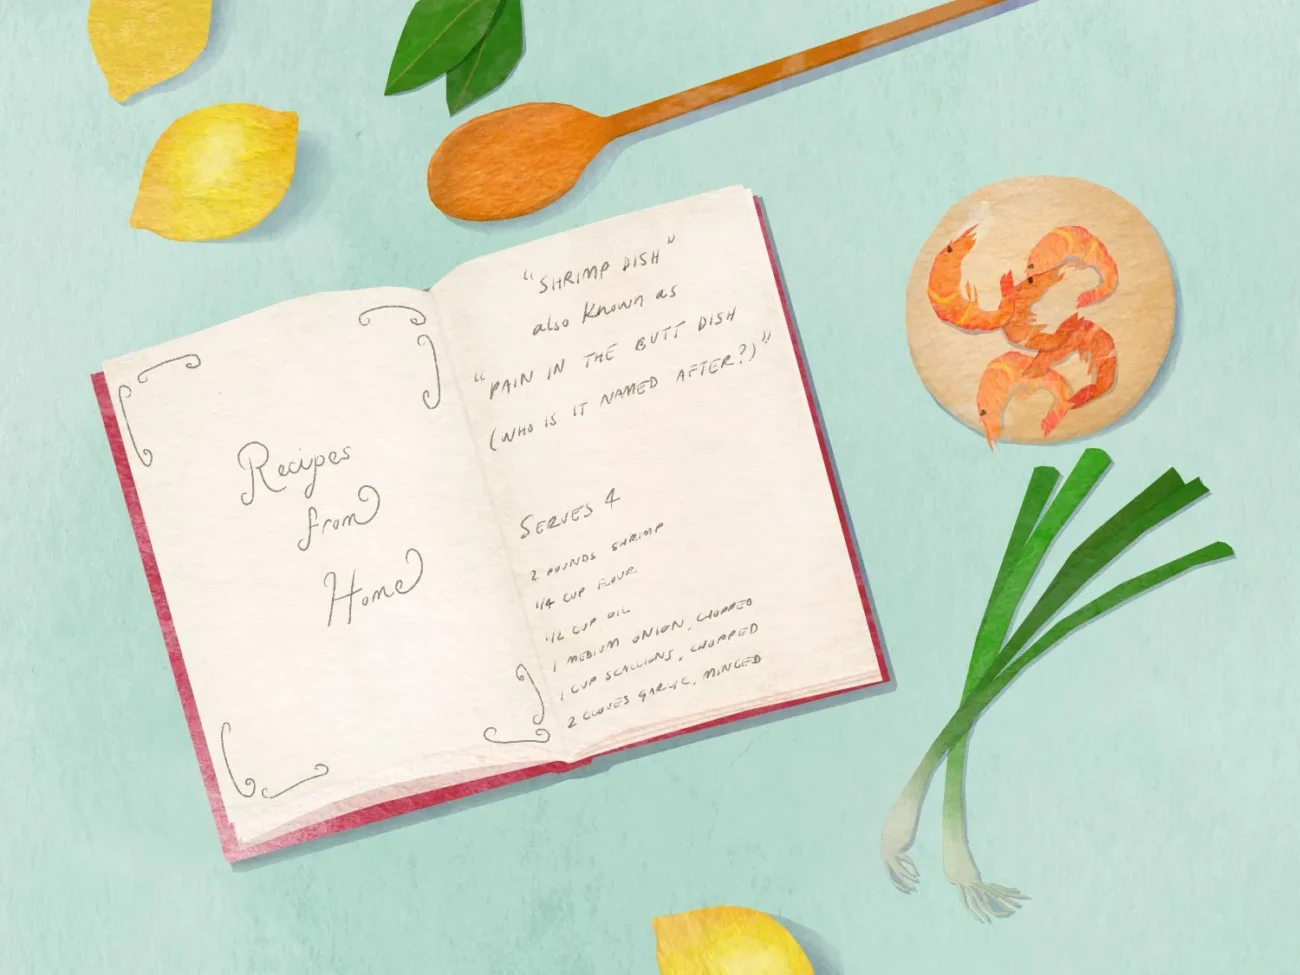 Recipes
from
Home
"SHRIMP DISH"
also known as
"PAIN IN THE BUTT DISH
(WHO IS IT NAMED AFTER?)"
SERVES 4
2 POUNDS SHRIMP
1/4 CUP FLOUR
1/2 CUP OIL
1 MEDIUM ONION, CHOPPED
1 CUP SCALLIONS, CHOPPED
2 CLOVES GARLIC, MINCED